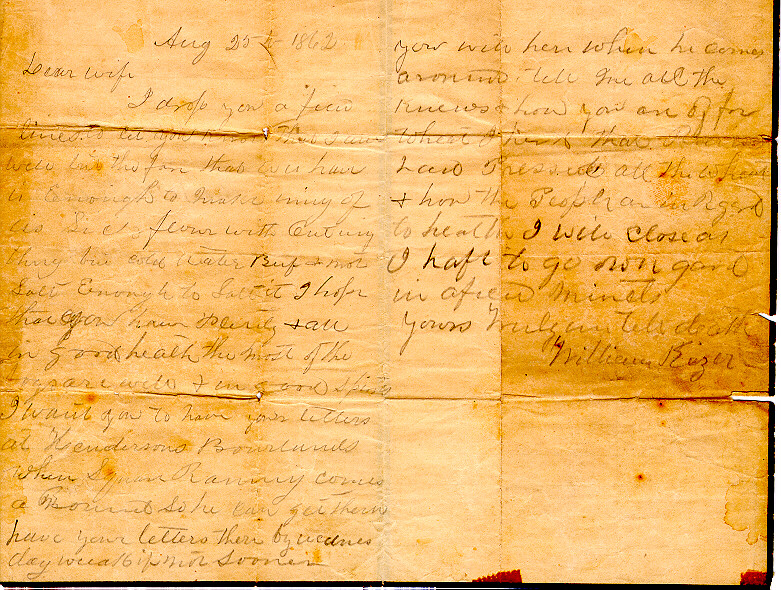 Aug 25th 1862
Dear wife
I drop you a few
lines to let you know that I am
well but the fair that we have
is Enough to make meny of
us Sick flour with Eny
thing but cold Water Beef & not
Salt Enough to Salt it I hope
that you have plenty & all
in good health the most of the
boys are well & in good Spirits
I want you to have your letters
at Hendersons Bourlands
when Squair Ranny comes
a Round So he can get them
have your letters then by wednes
day week if not Sooner
you will here when he comes
around tell me all the
knews & how you are of for
wheat I heard that
have Pressed all the wheat
& how the People are in Regard
to health I will close as
I haft to go own gard
in a few Minets
yours truly un tell death
William Kizer